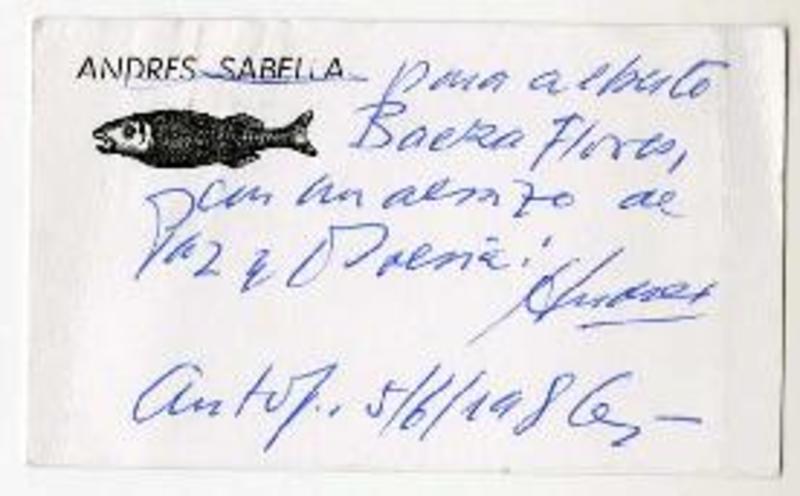 ANDRES SABELLA para Alberto
Baeza Flores,
con un abrazo de
Paz y Poesía!
Andrés
Antof., 5/6/1986,-